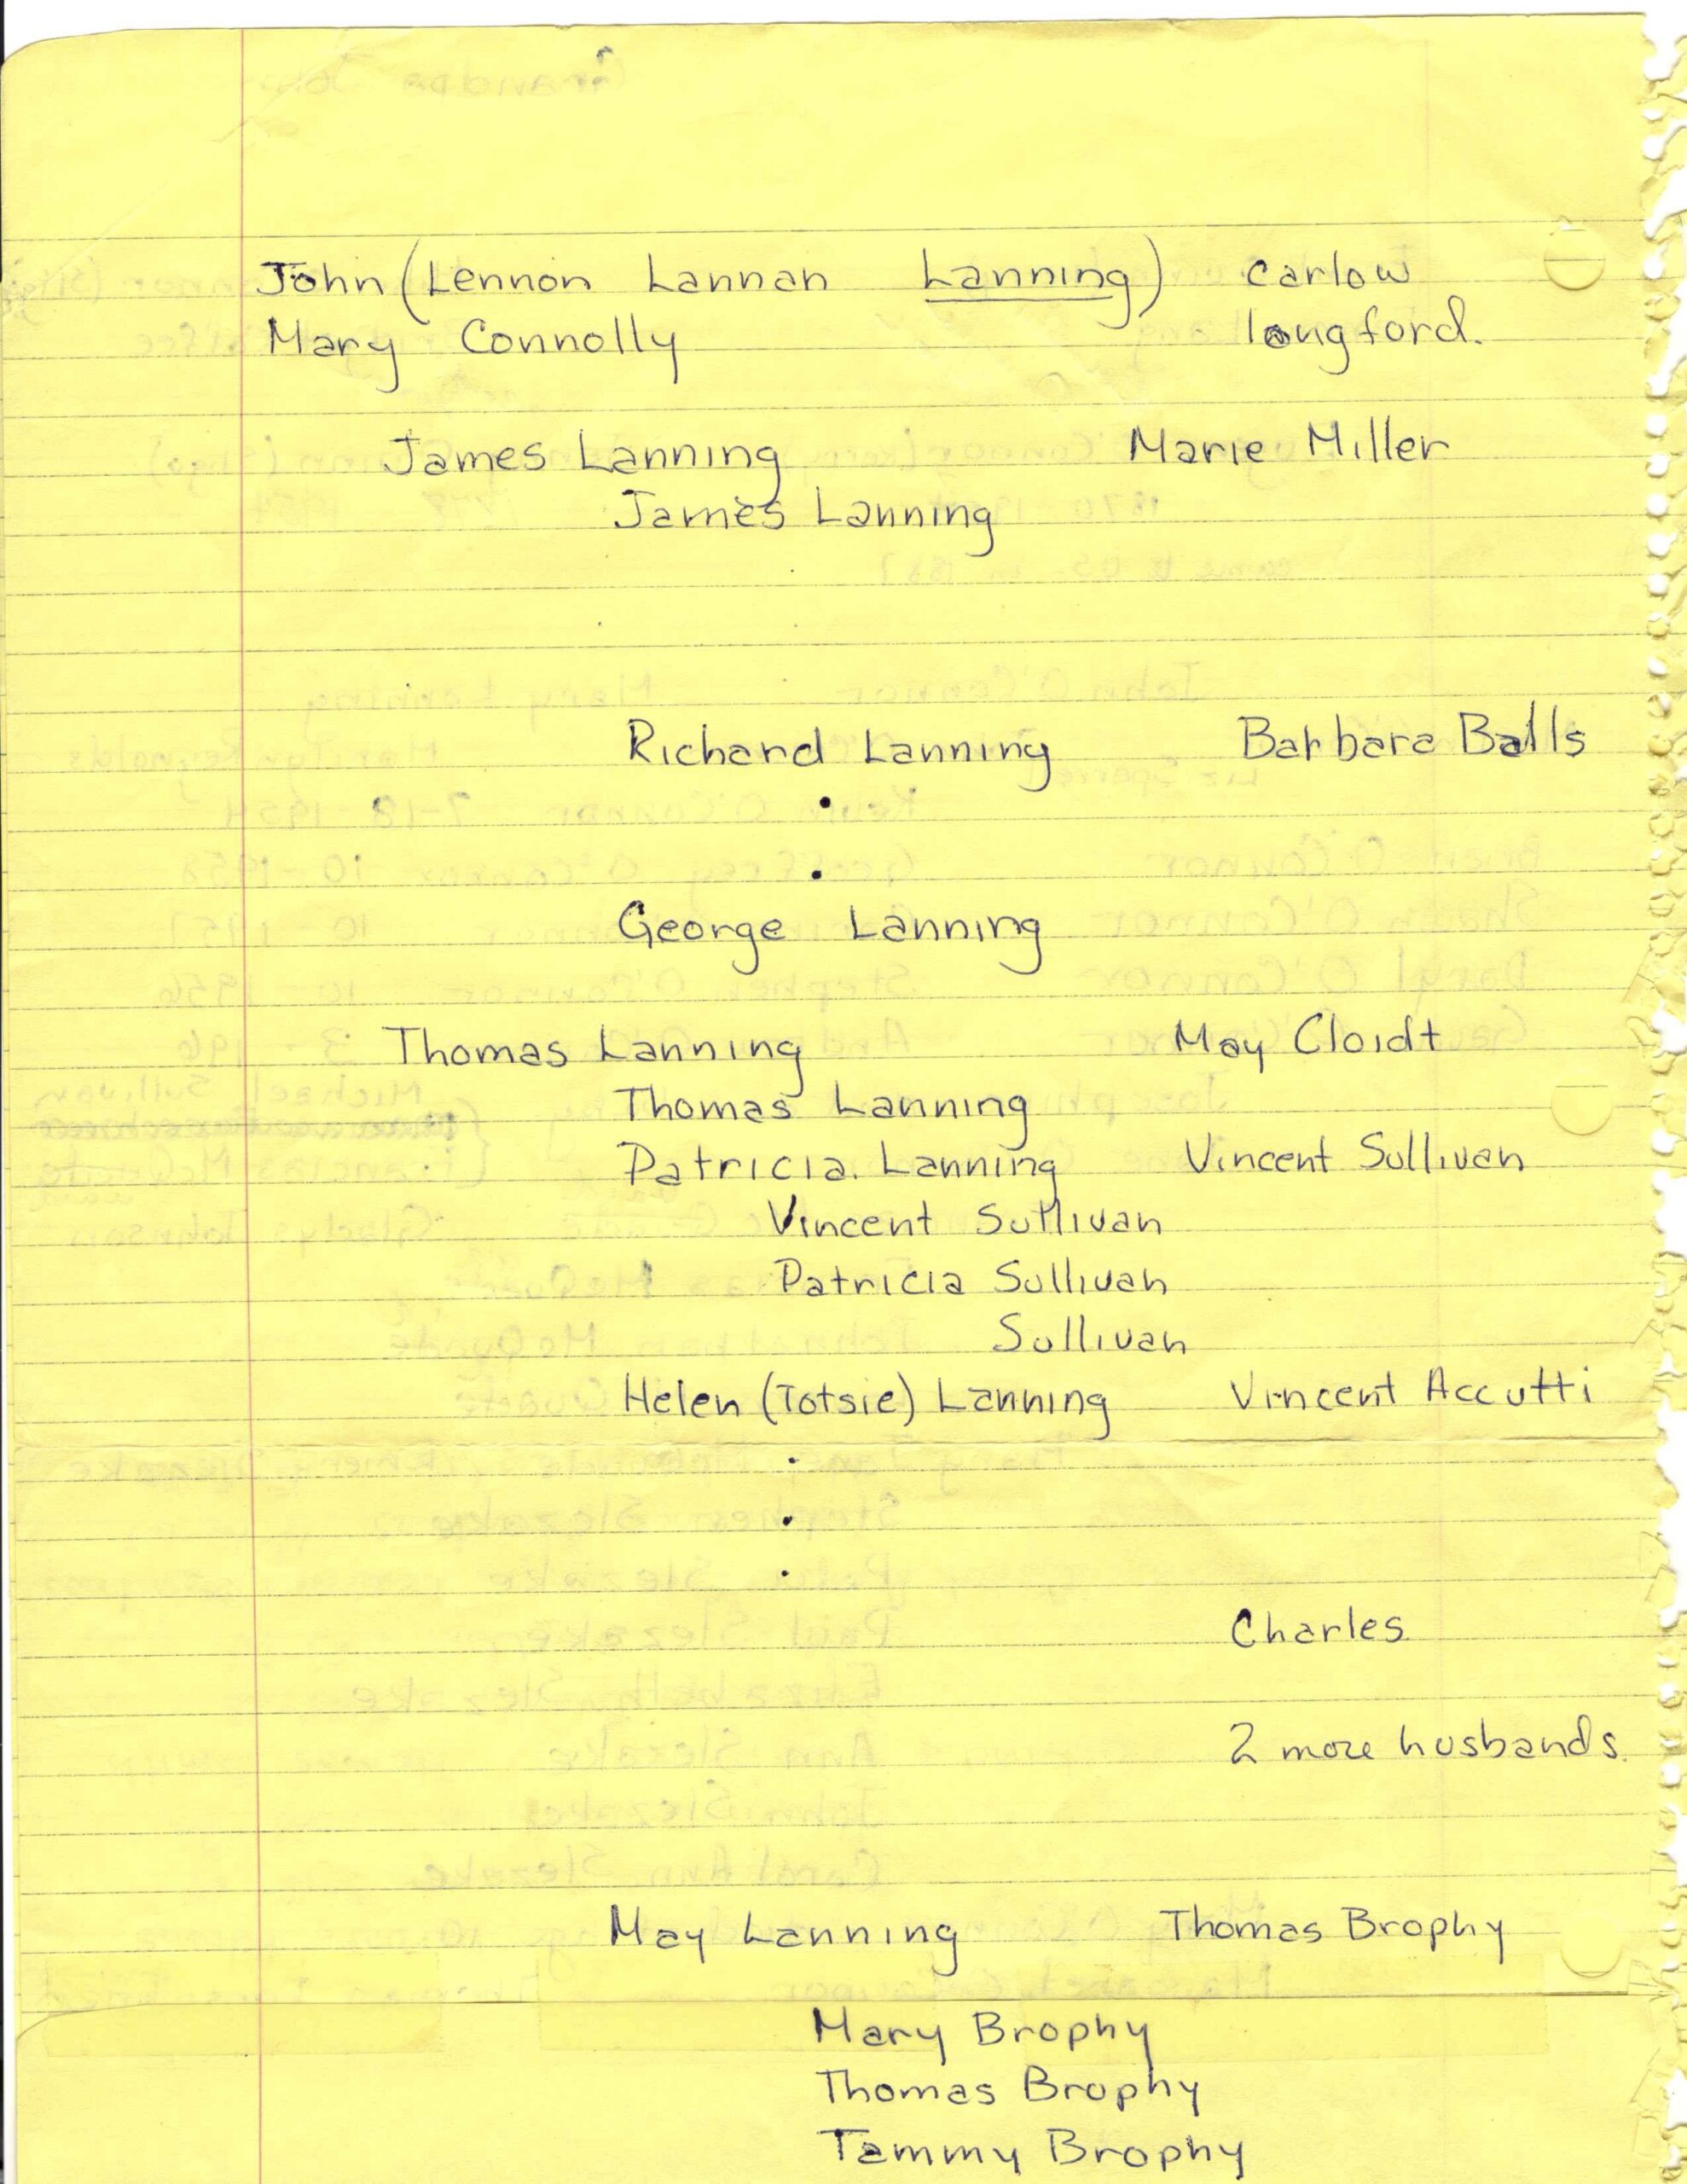 John (Lennon Lannan Lanning) Carlow
Mary Connolly longford.
James Lanning Marie Miller
James Lanning
Richard Lanning Barbara Balls
George Lanning
Thomas Lanning May Cloidt
Thomas Lanning
Patricia Lanning Vincent Sullivan
Vincent Sullivan
Patricia Sullivan
Sullivan
Helen (Totsie) Lanning Vincent Accutti
Charles
2 more husbands.
May Lanning Thomas Brophy
Mary Brophy
Thomas Brophy
Tammy Brophy